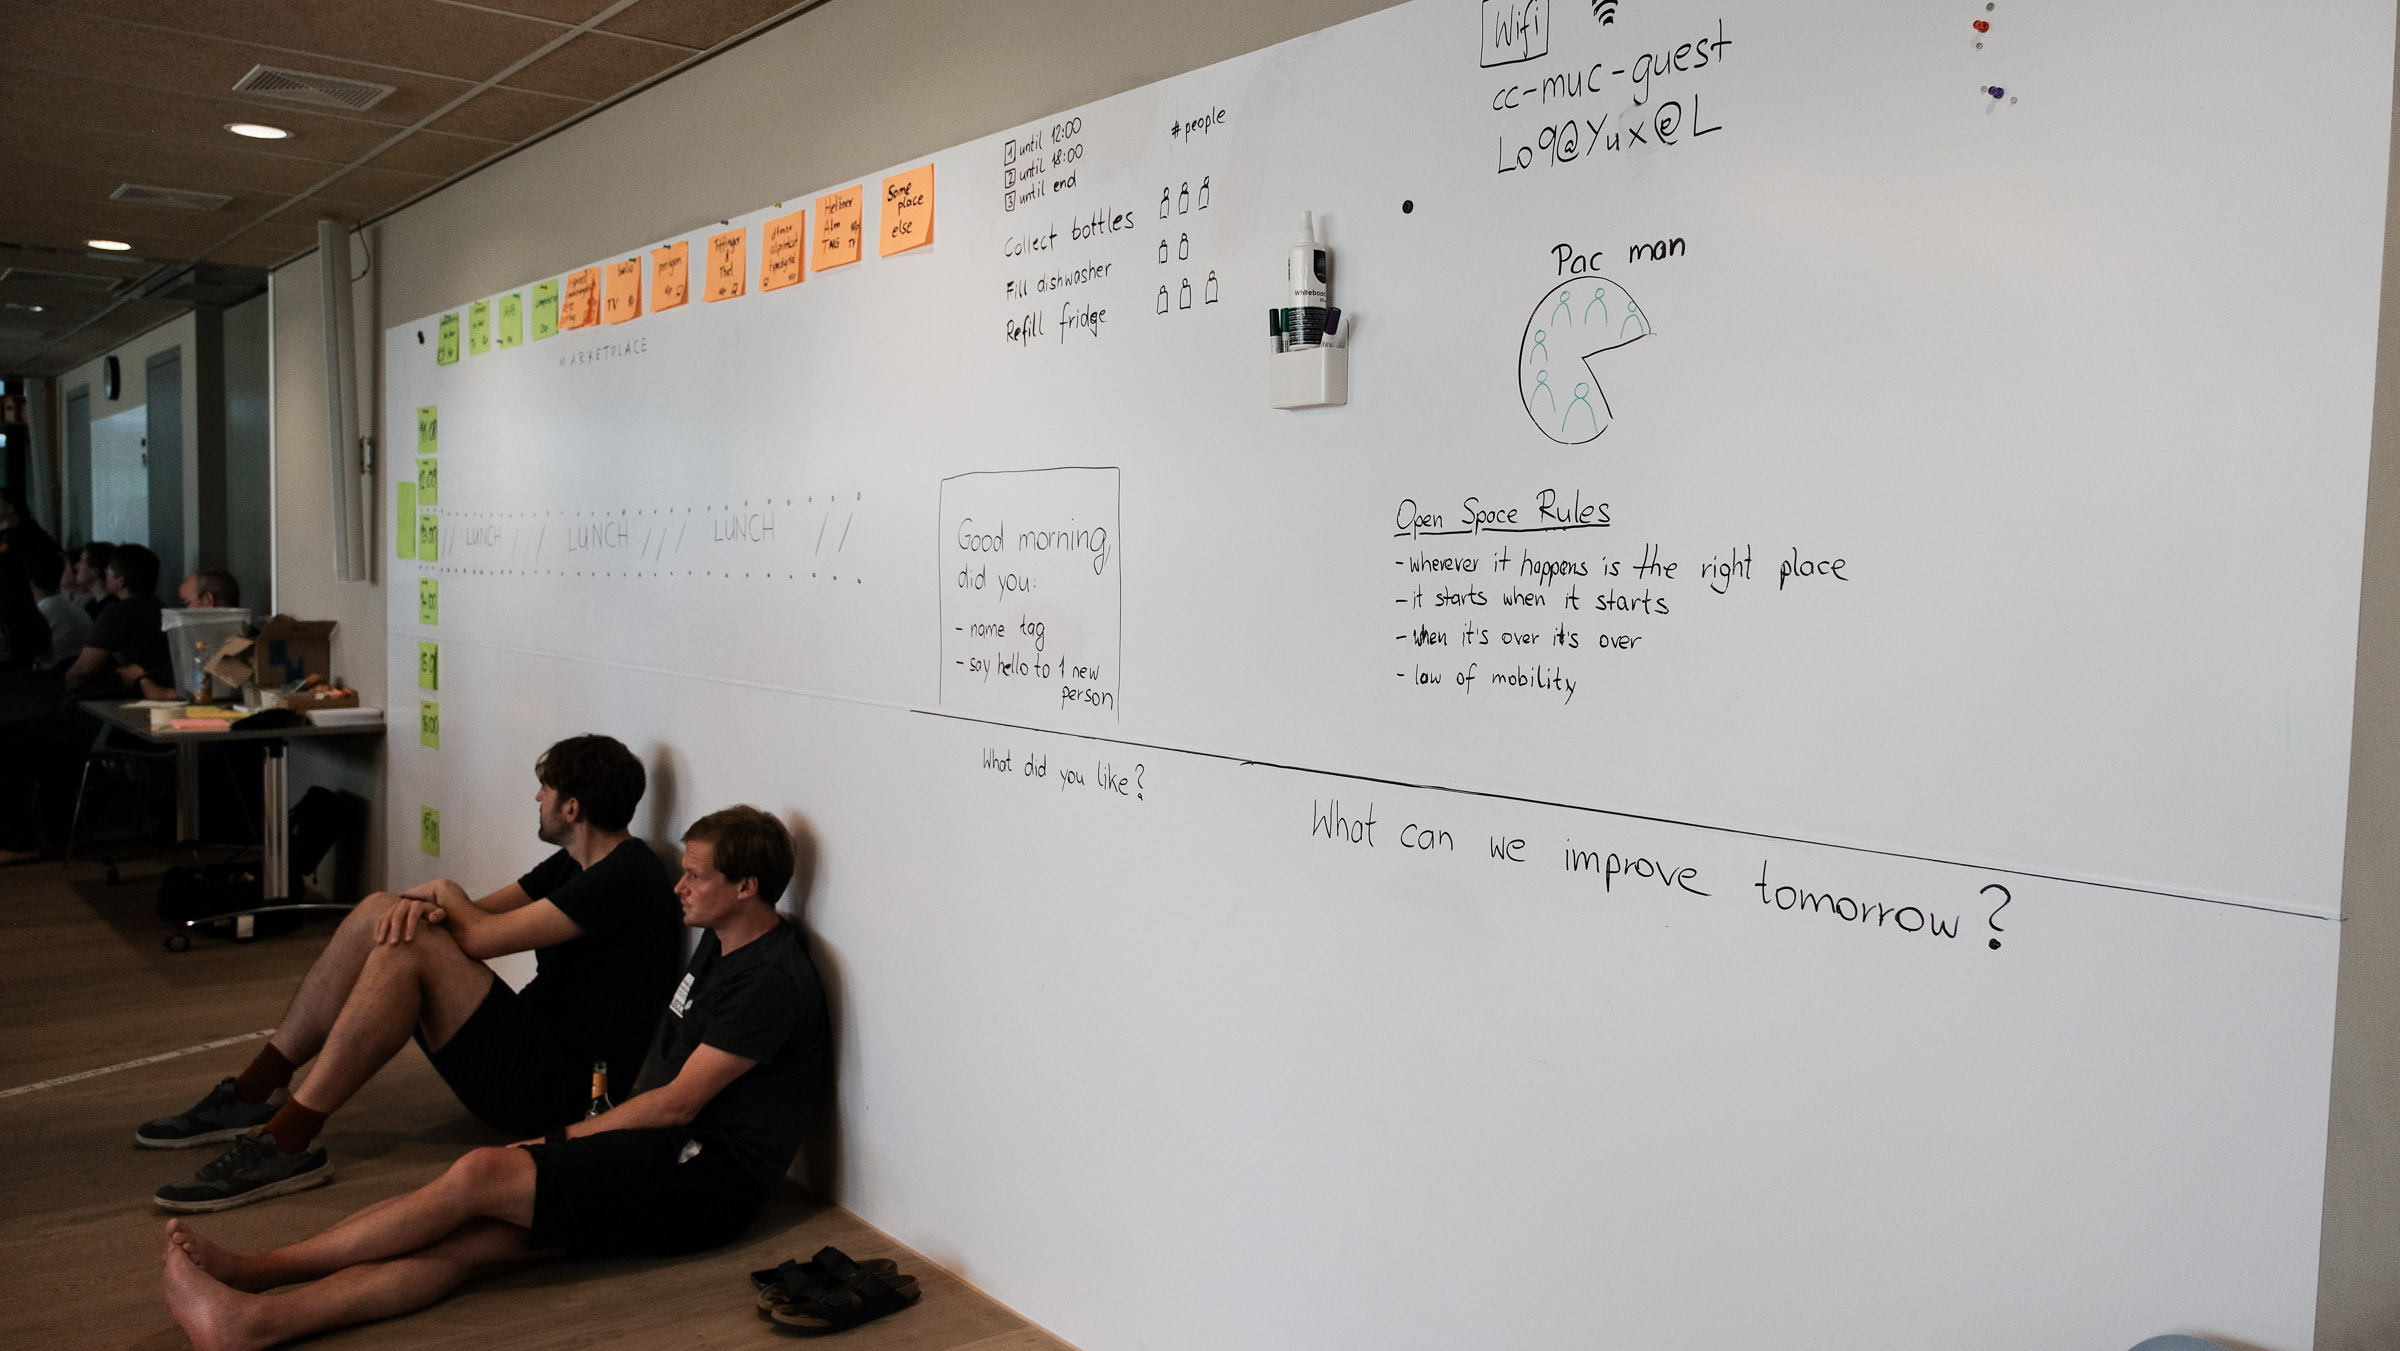 Wifi
cc-muc-guest
Lo9@Yux@L
1 until 12:00
2 until 18:00
3 until end
#people
Collect bottles
Fill dishwasher
Refill fridge
Some
place
else
Alm
TV
TV
MARKETPLACE
11:00
12:00
13:00
14:00
15:00
16:00
17:00
// LUNCH /// LUNCH /// LUNCH //
Good morning,
did you:
- name tag
- say hello to 1 new
person
Whiteboard
Pac man
Open Space Rules
- wherever it happens is the right place
- it starts when it starts
- when it's over it's over
- law of mobility
What did you like?
What can we improve tomorrow?